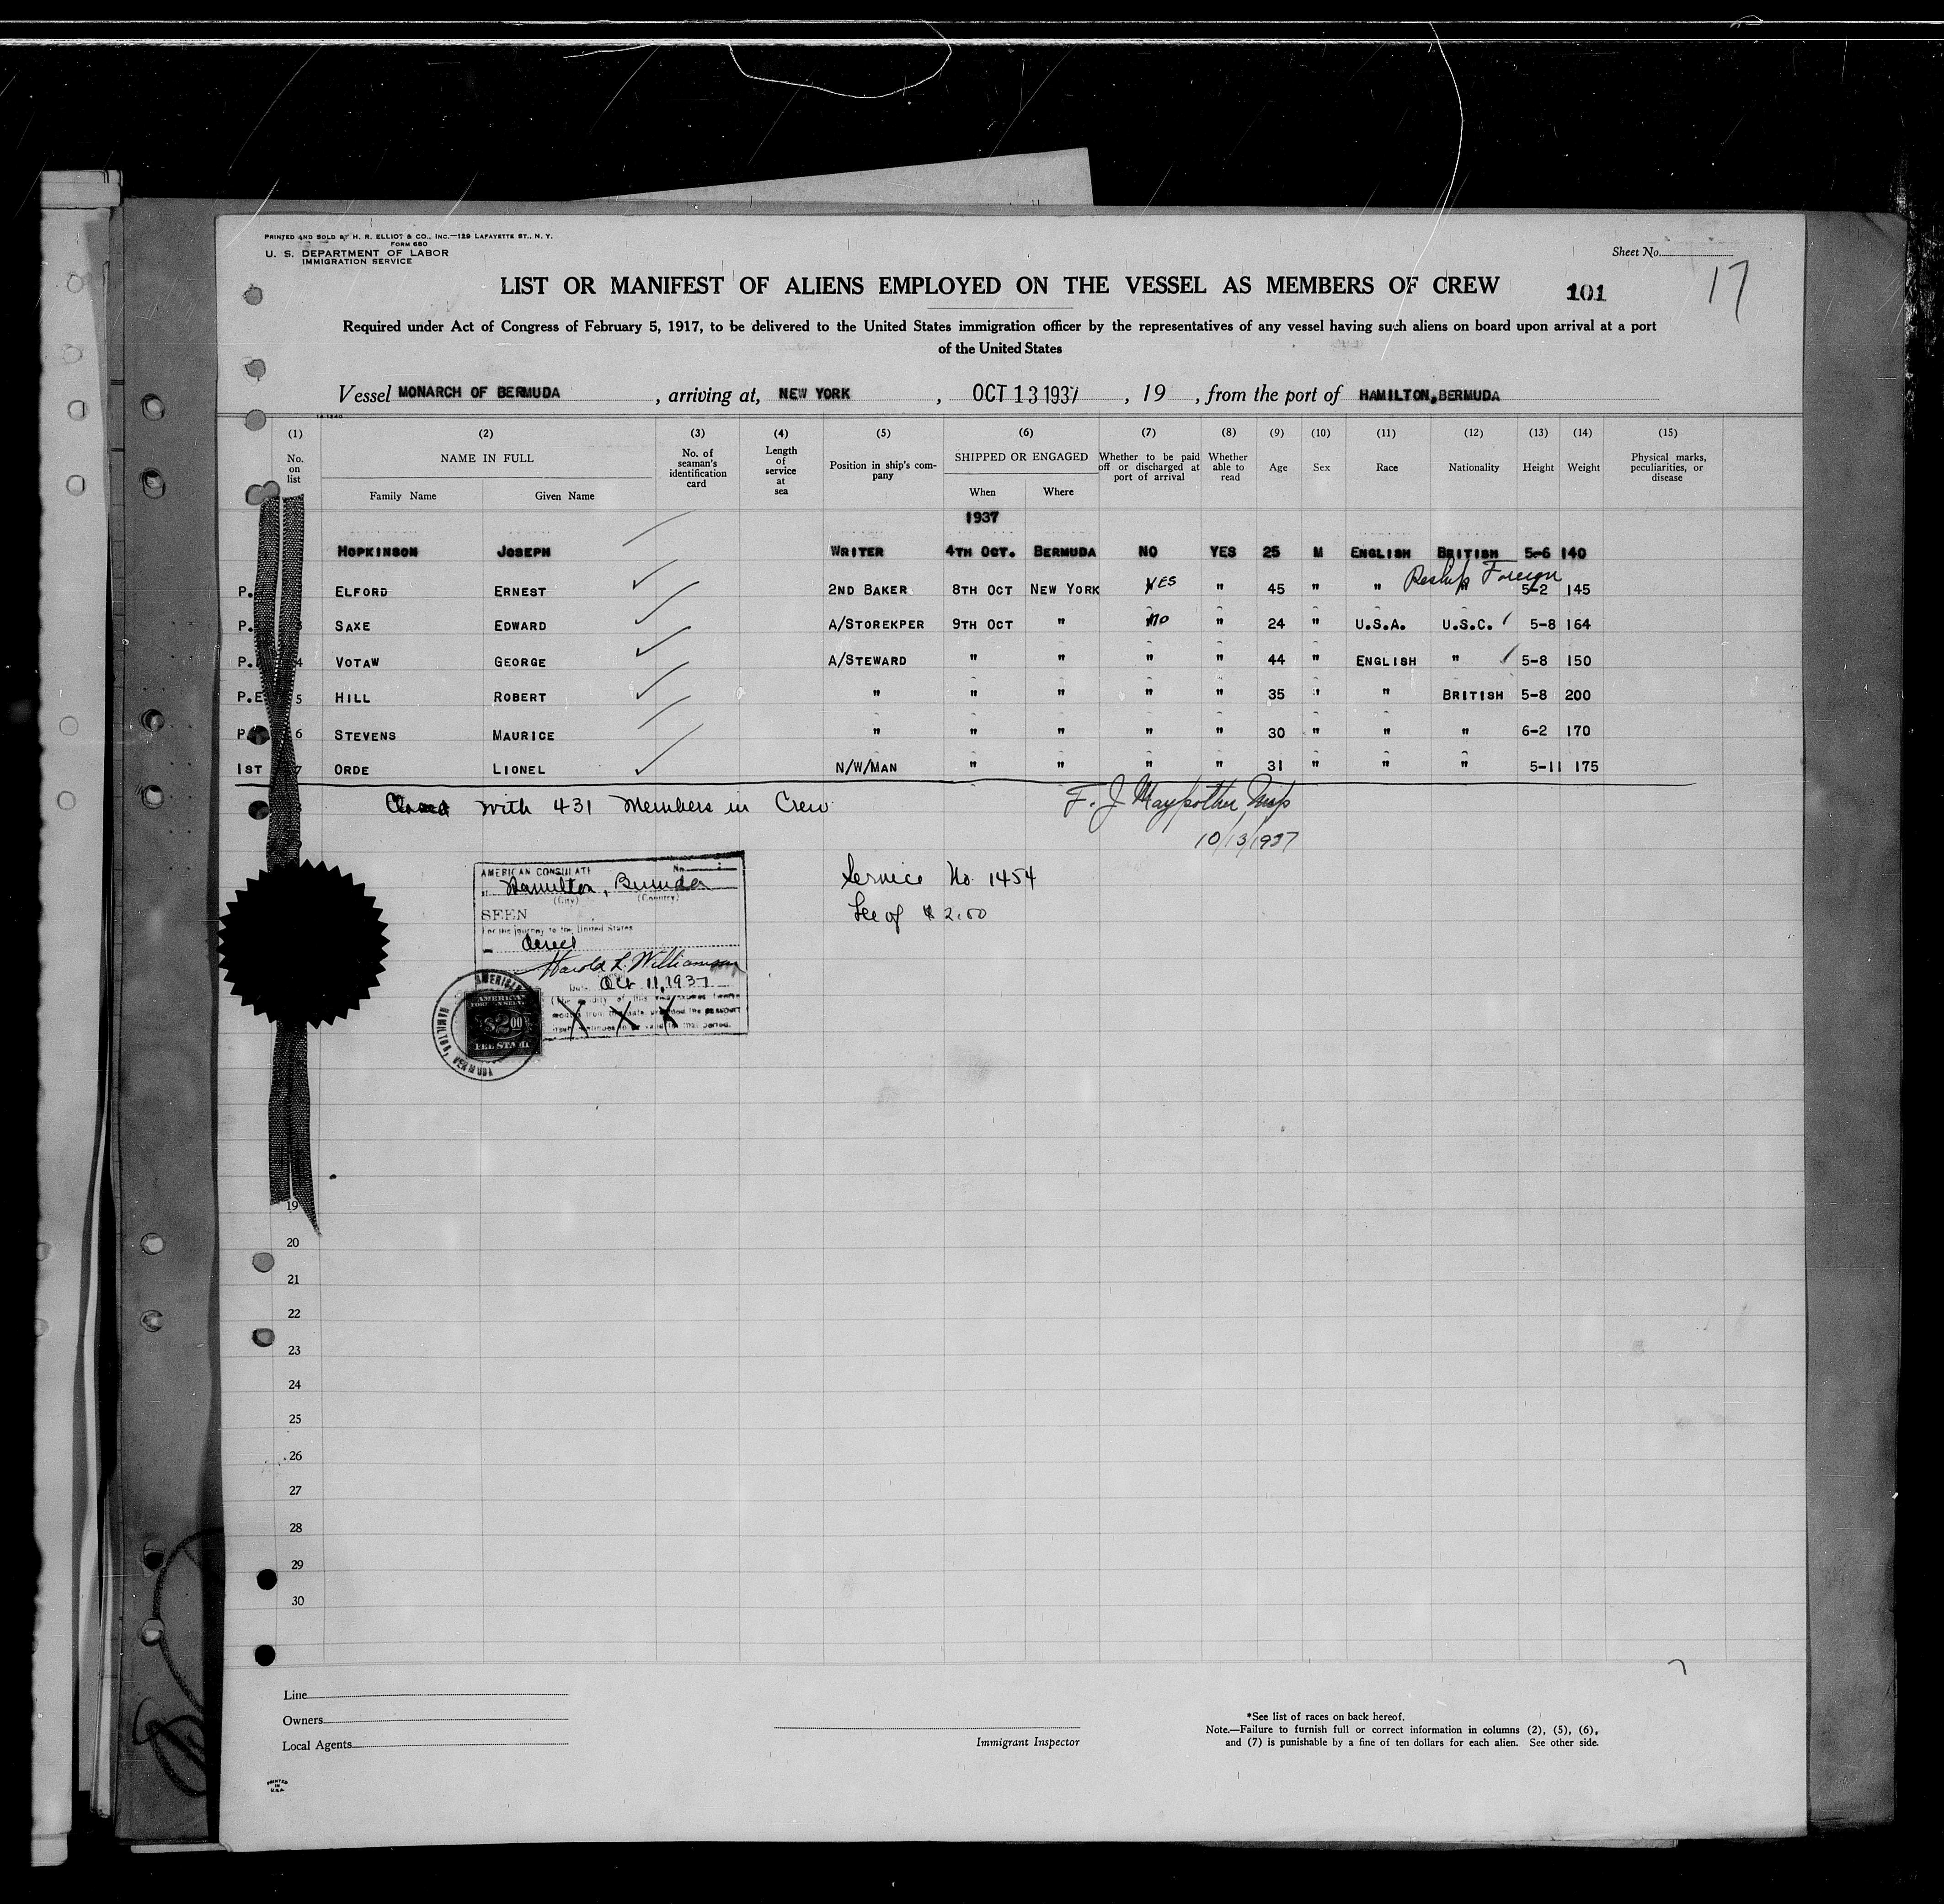 PRINTED AND SOLD BY H. R. ELLIOT & CO., INC.—129 LAFAYETTE ST., N. Y.
FORM 680
U. S. DEPARTMENT OF LABOR
IMMIGRATION SERVICE
Sheet No.
LIST OR MANIFEST OF ALIENS EMPLOYED ON THE VESSEL AS MEMBERS OF CREW 101 17
Required under Act of Congress of February 5, 1917, to be delivered to the United States immigration officer by the representatives of any vessel having such aliens on board upon arrival at a port
of the United States
Vessel MONARCH OF BERMUDA, arriving at, NEW YORK, OCT 13 1937, 19 , from the port of HAMILTON, BERMUDA
(1) (2) (3) (4) (5) (6) (7) (8) (9) (10) (11) (12) (13) (14) (15)
No. on list
NAME IN FULL
Family Name Given Name
No. of seaman's identification card
Length of service at sea
Position in ship's company
SHIPPED OR ENGAGED
When Where
Whether to be paid off or discharged at port of arrival
Whether able to read
Age
Sex
Race
Nationality
Height
Weight
Physical marks, peculiarities, or disease
1937
HOPKINSON JOSEPH WRITER 4TH OCT. BERMUDA NO YES 25 M ENGLISH BRITISH 5-6 140
Reship Foreign
P. ELFORD ERNEST 2ND BAKER 8TH OCT NEW YORK YES " 45 " " " 5-2 145
P. 3 SAXE EDWARD A/STOREKPER 9TH OCT " NO " 24 " U.S.A. U.S.C. 5-8 164
P. 4 VOTAW GEORGE A/STEWARD " " " " 44 " ENGLISH " 5-8 150
P.E 5 HILL ROBERT " " " " " 35 " " BRITISH 5-8 200
P. 6 STEVENS MAURICE " " " " " 30 " " " 6-2 170
1ST 7 ORDE LIONEL N/W/MAN " " " " 31 " " " 5-11 175
Closed with 431 Members in Crew
F. J. Maypother Insp
10/13/1937
AMERICAN CONSULATE No.
at Hamilton, Bermuda
(City) (Country)
SEEN
For the journey to the United States
Harold L. Williamson
Date Oct 11, 1937
X X X
Service No. 1454
Fee of $ 2.00
AMERICAN
HAMILTON, BERMUDA
AMERICAN
$2.00
FEE STAMP
19
20
21
22
23
24
25
26
27
28
29
30
Line
Owners
Local Agents
Immigrant Inspector
*See list of races on back hereof.
Note.—Failure to furnish full or correct information in columns (2), (5), (6),
and (7) is punishable by a fine of ten dollars for each alien. See other side.
PRINTED
IN
U.S.A.